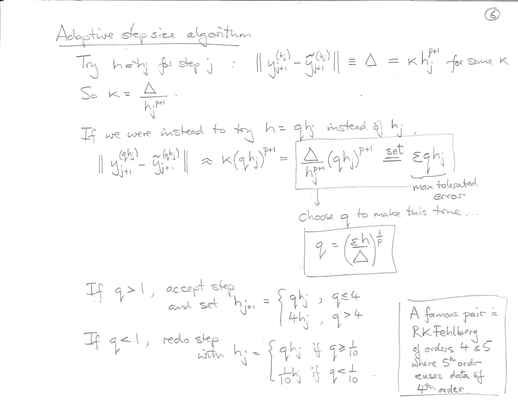 ⑥
Adaptive step size algorithm
Try h=h_j for step j : ‖ y_{j+1}^{(h_j)} - ỹ_{j+1}^{(h_j)} ‖ ≡ Δ = κ h_j^{p+1} for some κ
So κ = Δ / h_j^{p+1} .
If we were instead to try h = qh_j instead of h_j ,
‖ y_{j+1}^{(qh_j)} - ỹ_{j+1}^{(qh_j)} ‖ ≈ κ(qh_j)^{p+1} = Δ / h^{p+1} (qh_j)^{p+1} set = εqh_j
max tolerated
error
choose q to make this true ...
q = (εh / Δ)^{1/p}
If q > 1 , accept step
and set h_{j+1} = { qh_j , q≤4
4h_j , q > 4
If q < 1 , redo step
with h_j = { qh_j if q ≥ 1/10
1/10 h_j if q < 1/10 .
A famous pair is
RK Fehlberg
of orders 4 & 5
where 5th order
reuses data of
4th order